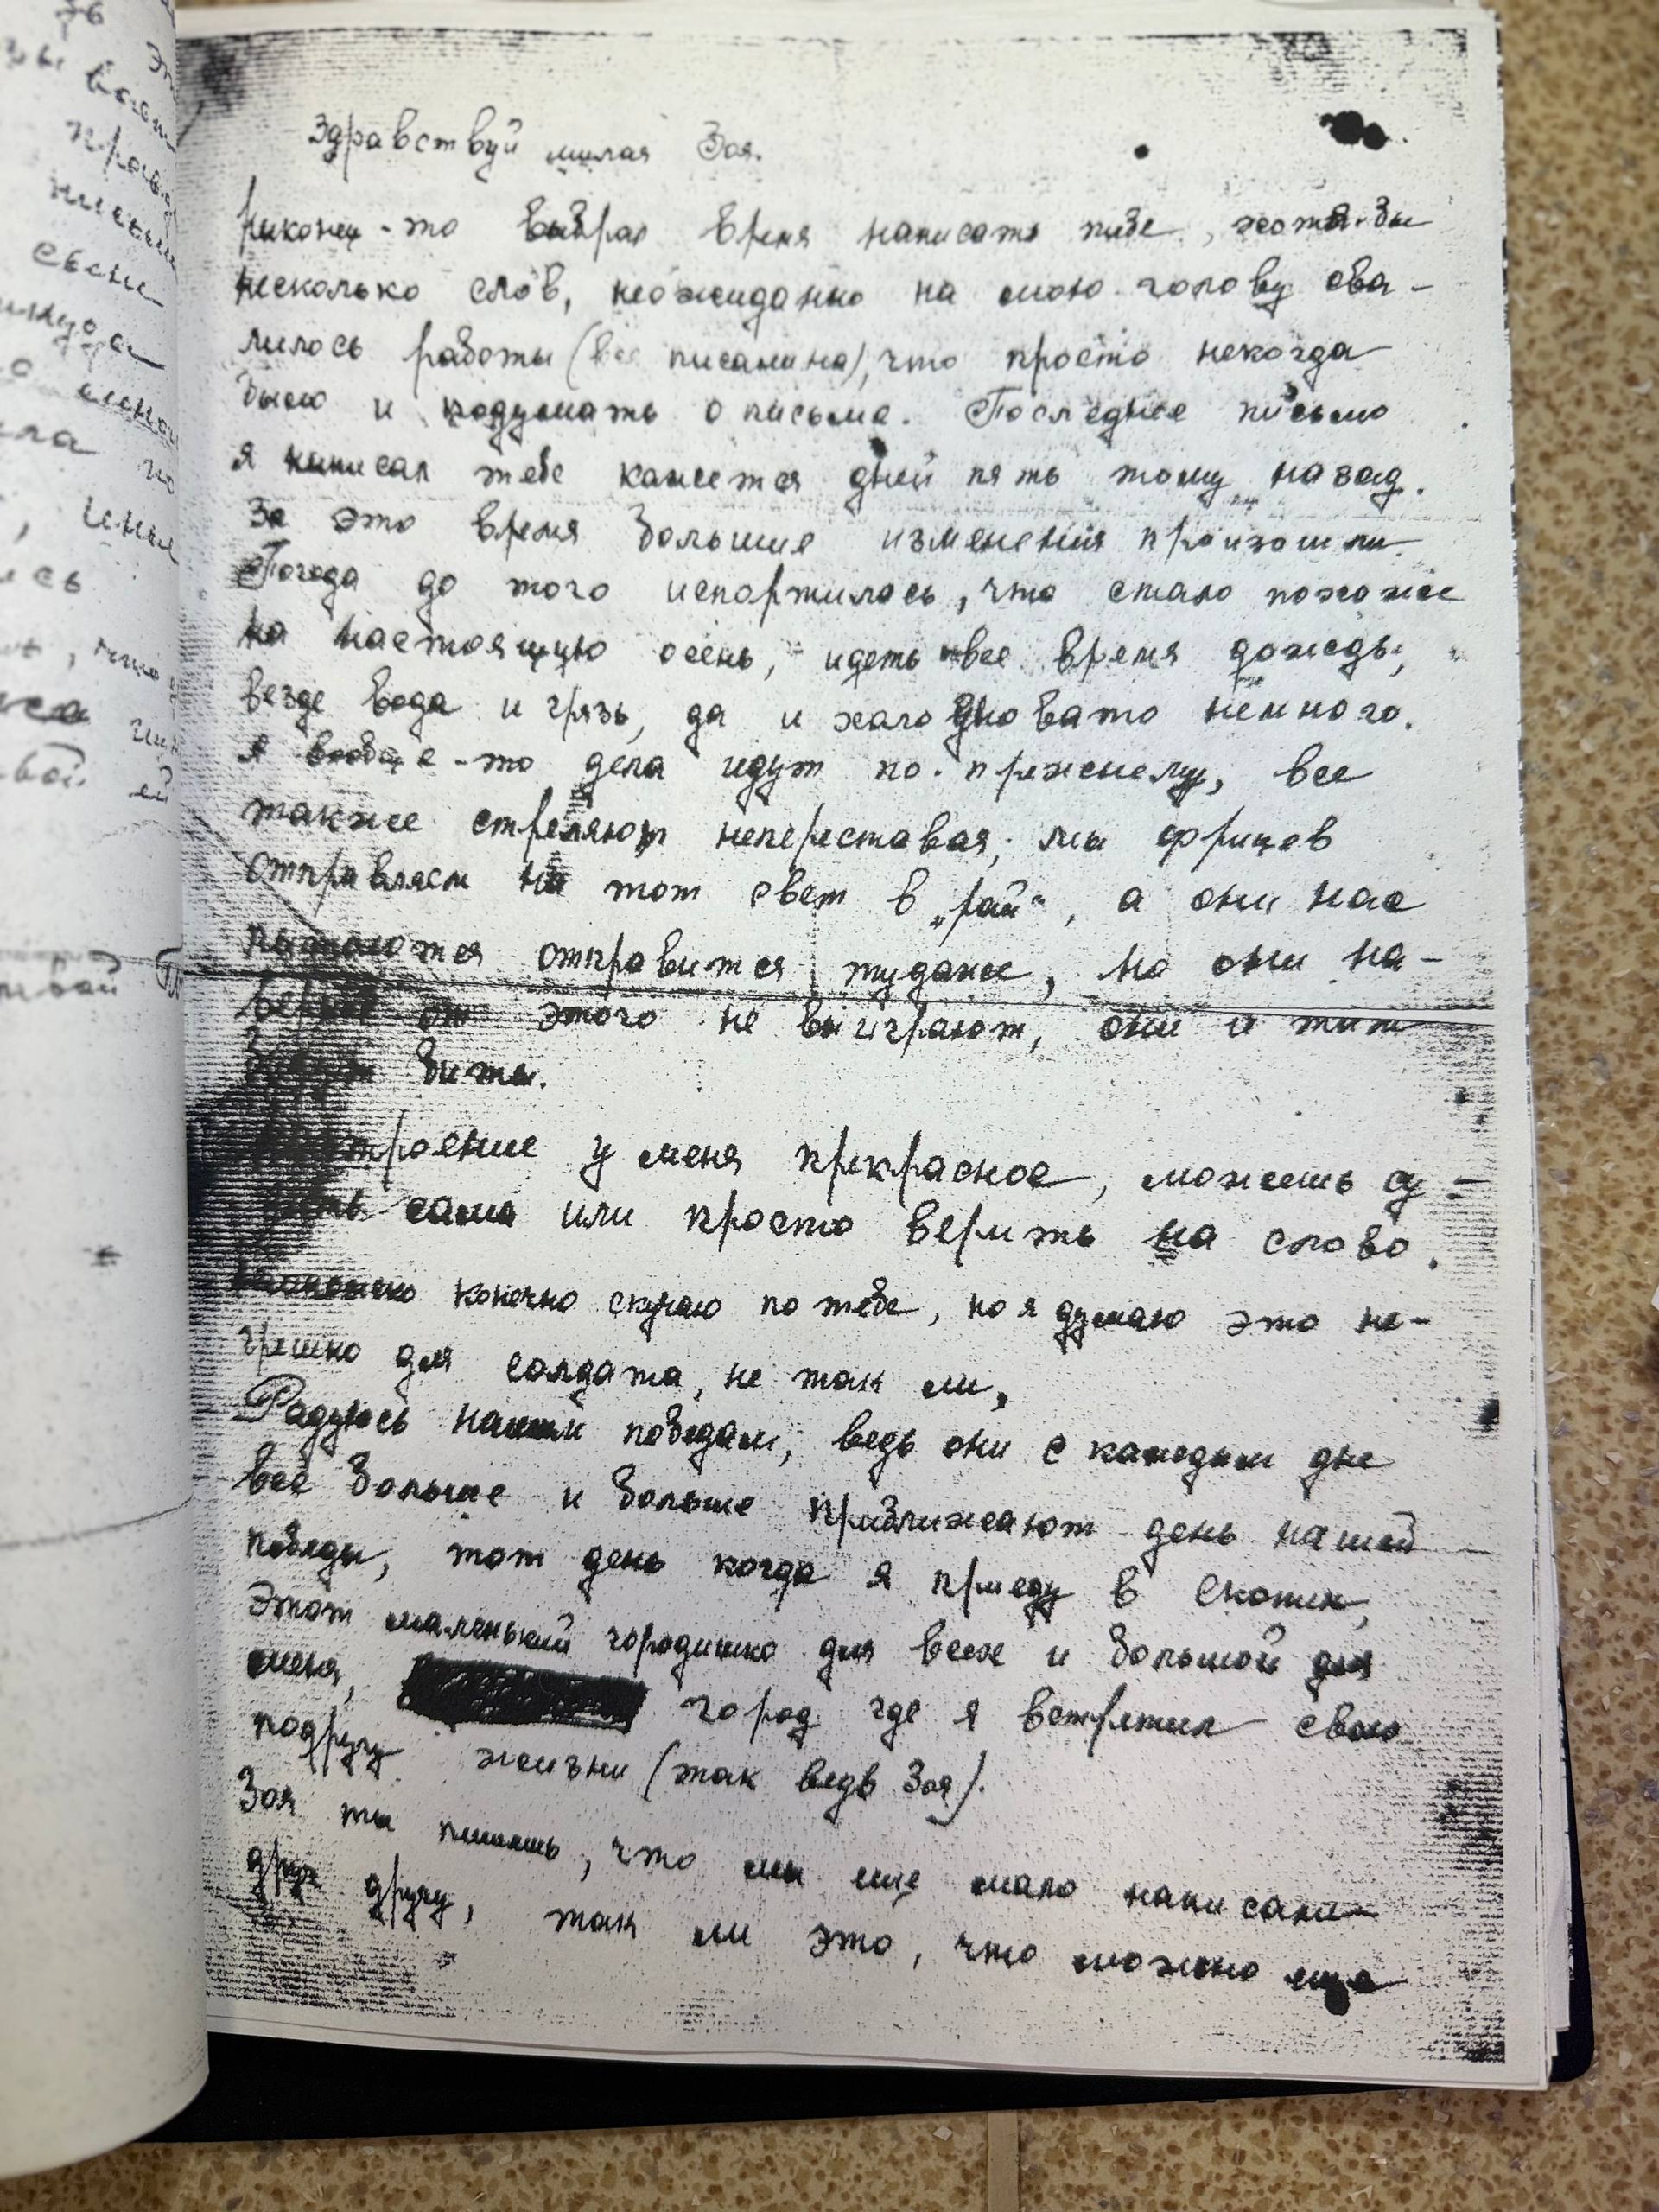 Здравствуй милая Зоя.
Наконец-то выбрал время написать тебе, хотя-бы
несколько слов, неожиданно на мою голову сва-
лилось работы (все писанина), что просто некогда
было и подумать о письме. Последнее письмо
я написал тебе кажется дней пять тому назад.
За это время большие изменения произошли.
Погода до того испортилось, что стало похоже
на настоящую осень, идеть все время дождь,
везде вода и грязь, да и холодновато немного.
А вообще-то дела идут по-прежнему, все
также стреляют непереставая, мы фрицев
отправляем на тот свет в „рай“, а они нас
пытаются отправится тудаже, но они на-
верное от этого не выиграют, они и так
будут биты.
Настроение у меня прекрасное, можешь су-
дить сама или просто верить на слово.
конечно скучаю по тебе, но я думаю это не-
грешно для солдата, не так ли,
Радуюсь нашим победам, ведь они с каждым дне
все больше и больше приближают день нашей
победы, тот день когда я приеду в Скопин,
Этот маленький городишко для всех и большой для
меня, город где я встретил свою
подругу жизни (так ведь Зоя).
Зоя ты пишешь, что мы еще мало написали
друг другу, так ли это, что можно еще